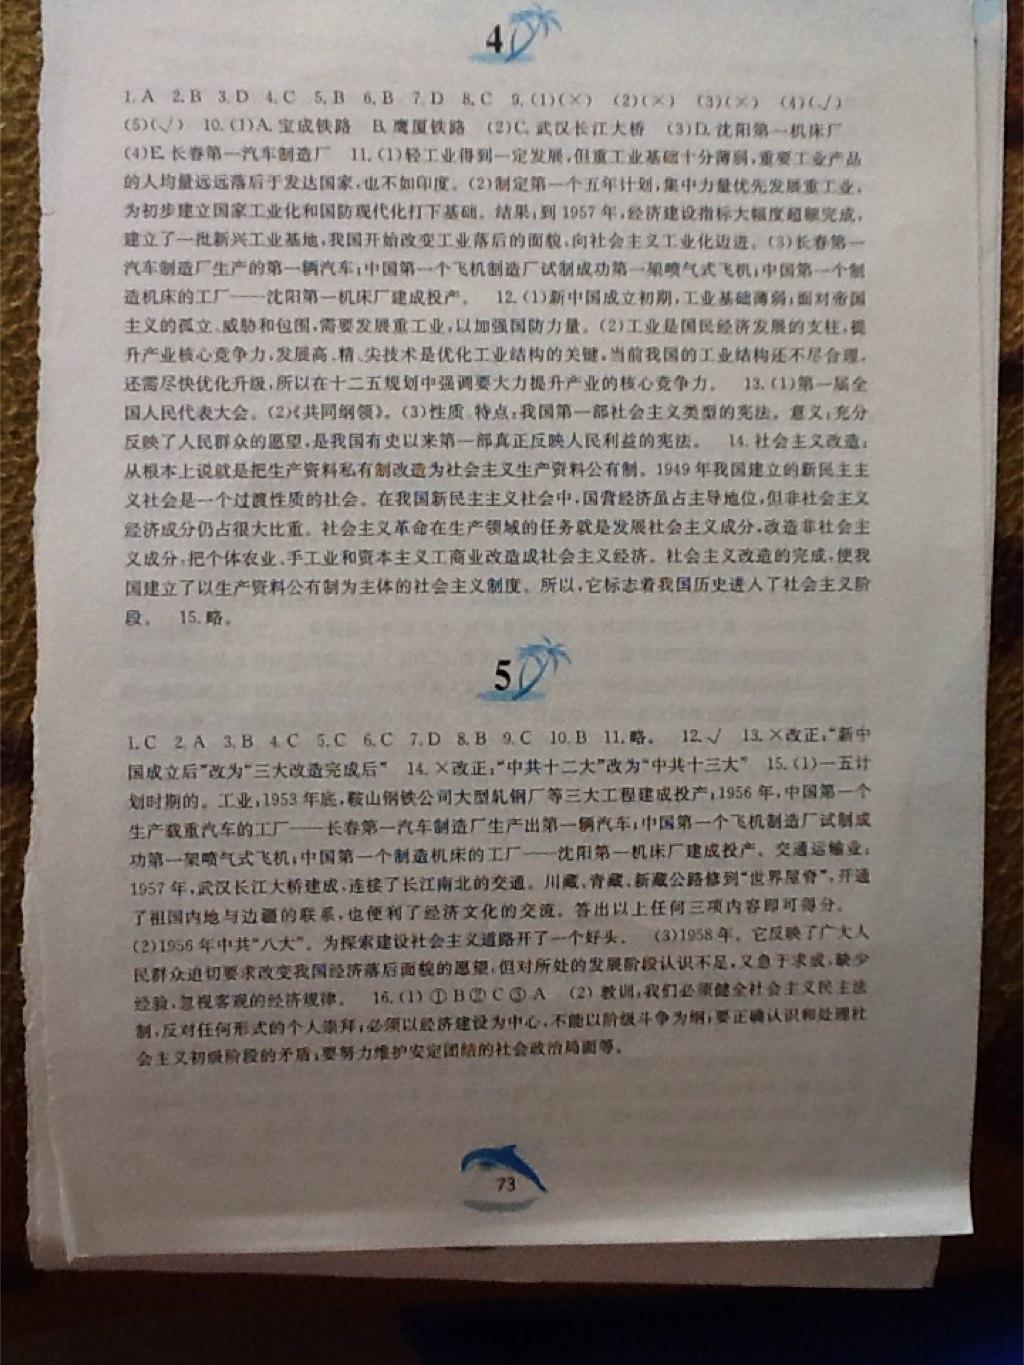 4
1. A 2. B 3. D 4. C 5. B 6. B 7. D 8. C 9. (1)(×) (2)(×) (3)(×) (4)(√)
(5)(√) 10. (1)A. 宝成铁路 B. 鹰厦铁路 (2)C. 武汉长江大桥 (3)D. 沈阳第一机床厂
(4)E. 长春第一汽车制造厂 11. (1)轻工业得到一定发展,但重工业基础十分薄弱,重要工业产品
的人均量远远落后于发达国家,也不如印度。(2)制定第一个五年计划,集中力量优先发展重工业,
为初步建立国家工业化和国防现代化打下基础。结果:到 1957 年,经济建设指标大幅度超额完成,
建立了一批新兴工业基地,我国开始改变工业落后的面貌,向社会主义工业化迈进。(3)长春第一
汽车制造厂生产的第一辆汽车;中国第一个飞机制造厂试制成功第一架喷气式飞机;中国第一个制
造机床的工厂——沈阳第一机床厂建成投产。 12. (1)新中国成立初期,工业基础薄弱;面对帝国
主义的孤立、威胁和包围,需要发展重工业,以加强国防力量。(2)工业是国民经济发展的支柱,提
升产业核心竞争力,发展高、精、尖技术是优化工业结构的关键,当前我国的工业结构还不尽合理,
还需尽快优化升级,所以在十二五规划中强调要大力提升产业的核心竞争力。 13. (1)第一届全
国人民代表大会。(2)《共同纲领》。(3)性质、特点:我国第一部社会主义类型的宪法。意义:充分
反映了人民群众的愿望,是我国有史以来第一部真正反映人民利益的宪法。 14. 社会主义改造:
从根本上说就是把生产资料私有制改造为社会主义生产资料公有制。1949 年我国建立的新民主主
义社会是一个过渡性质的社会。在我国新民主主义社会中,国营经济虽占主导地位,但非社会主义
经济成分仍占很大比重。社会主义革命在生产领域的任务就是发展社会主义成分,改造非社会主
义成分,把个体农业、手工业和资本主义工商业改造成社会主义经济。社会主义改造的完成,使我
国建立了以生产资料公有制为主体的社会主义制度。所以,它标志着我国历史进入了社会主义阶
段。 15. 略。
5
1. C 2. A 3. B 4. C 5. C 6. C 7. D 8. B 9. C 10. B 11. 略。 12. √ 13. ×改正:“新中
国成立后”改为“三大改造完成后” 14. ×改正:“中共十二大”改为“中共十三大” 15. (1)一五计
划时期的。工业:1953 年底,鞍山钢铁公司大型轧钢厂等三大工程建成投产;1956 年,中国第一个
生产载重汽车的工厂——长春第一汽车制造厂生产出第一辆汽车;中国第一个飞机制造厂试制成
功第一架喷气式飞机;中国第一个制造机床的工厂——沈阳第一机床厂建成投产。交通运输业:
1957 年,武汉长江大桥建成,连接了长江南北的交通。川藏、青藏、新藏公路修到“世界屋脊”,开通
了祖国内地与边疆的联系,也便利了经济文化的交流。答出以上任何三项内容即可得分。
(2)1956 年中共“八大”。为探索建设社会主义道路开了一个好头。 (3)1958 年。它反映了广大人
民群众迫切要求改变我国经济落后面貌的愿望,但对所处的发展阶段认识不足,又急于求成,缺少
经验,忽视客观的经济规律。 16. (1) ① B ② C ③ A (2) 教训:我们必须健全社会主义民主法
制,反对任何形式的个人崇拜;必须以经济建设为中心,不能以阶级斗争为纲;要正确认识和处理社
会主义初级阶段的矛盾;要努力维护安定团结的社会政治局面等。
73